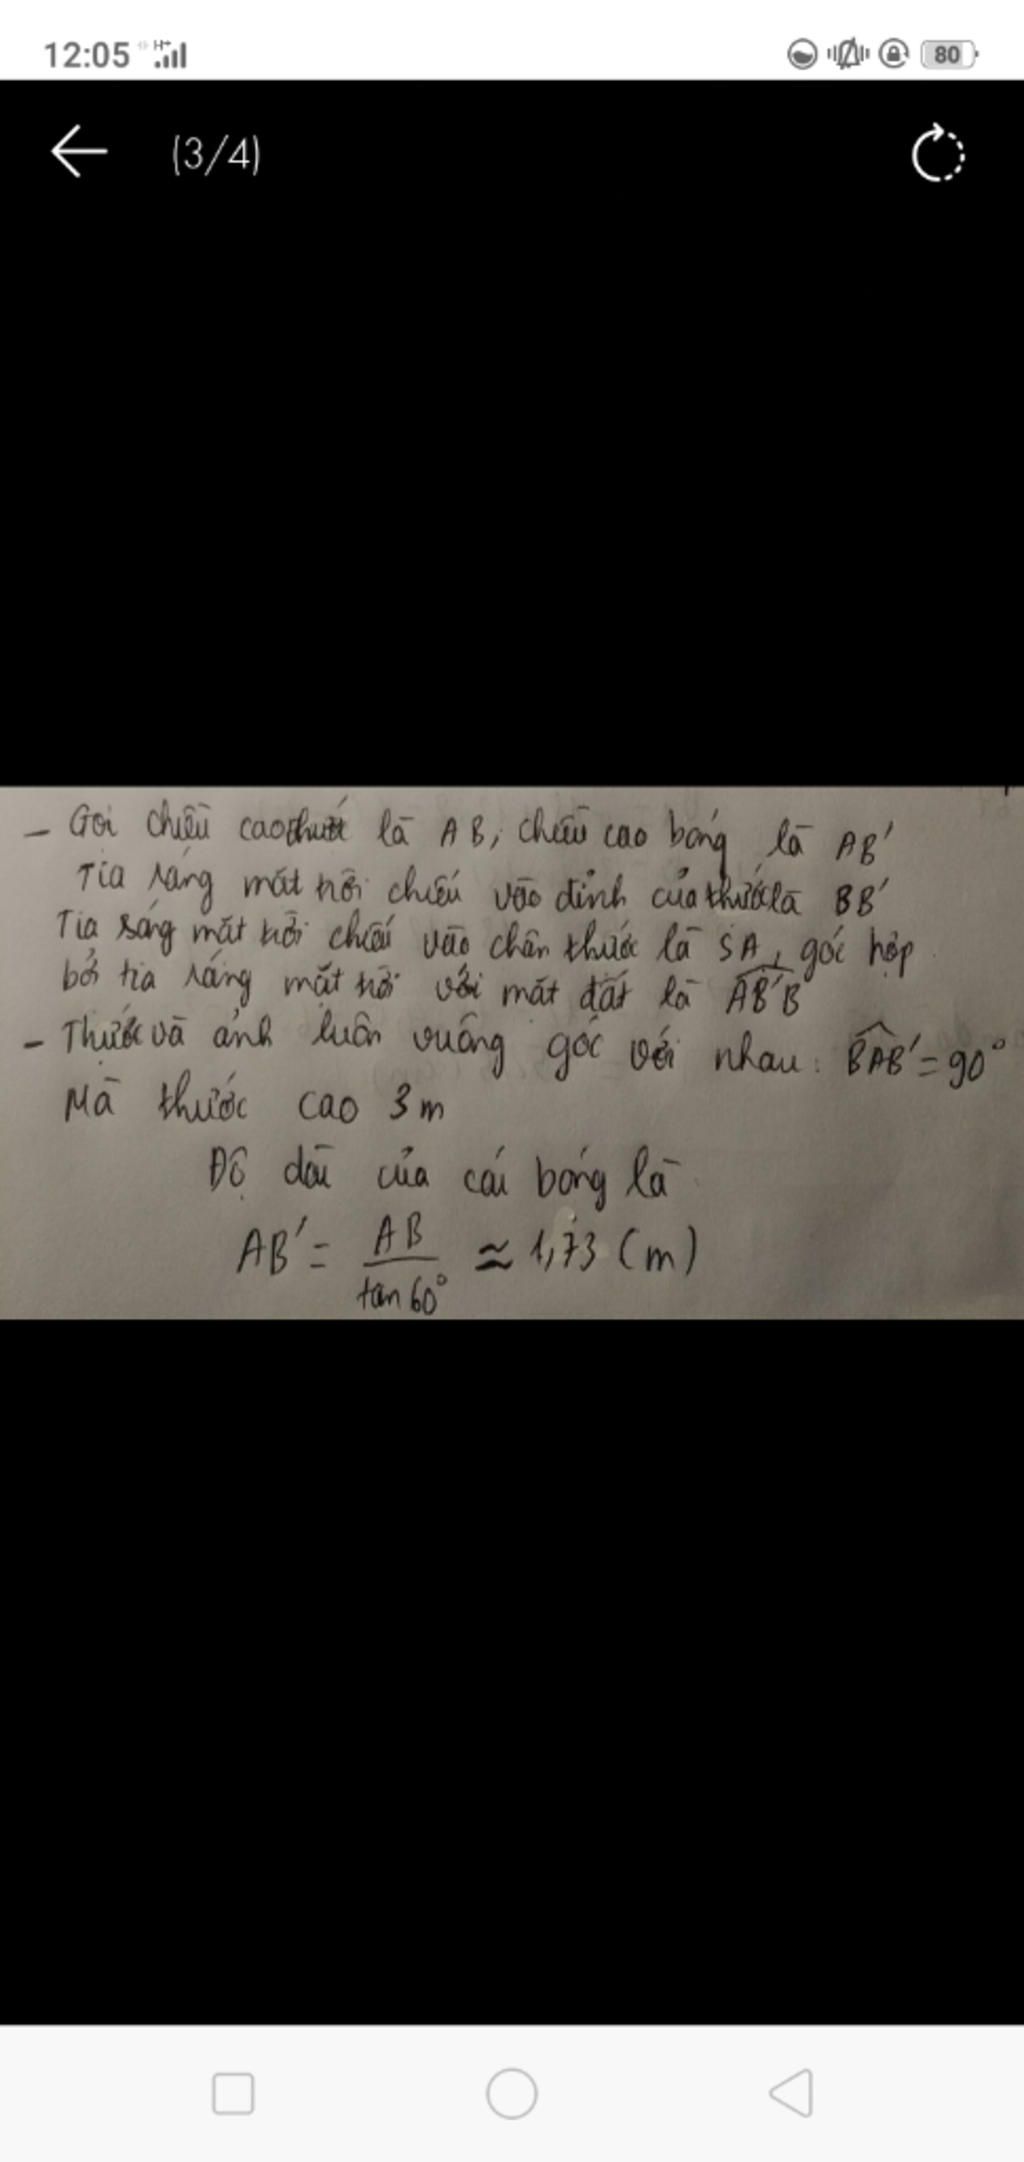 12:05 H+
80
(3/4)
- Gọi chiều cao thước là AB, chiều cao bóng là AB'
Tia sáng mặt trời chiếu vào đỉnh của thước là BB'
Tia sáng mặt trời chiếu vào chân thước là SA, góc hợp
bởi tia sáng mặt trời với mặt đất là AB'B
- Thước và ảnh luôn vuông góc với nhau: BAB' = 90°
Mà thước cao 3 m
Độ dài của cái bóng là
AB' = AB / tan 60° ≈ 1,73 (m)